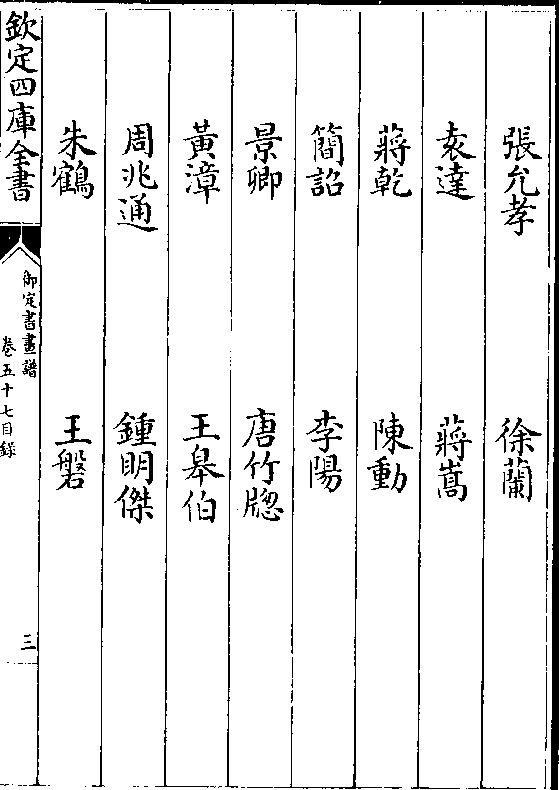 張允孝　徐蘭
袁達　蔣嵩
蔣乾　陳動
簡詔　李陽
景卿　唐竹牕
黃漳　王皋伯
周兆通　鍾明傑
朱鶴　王磐
欽定四庫全書
御定書畫譜
卷五十七目錄
三